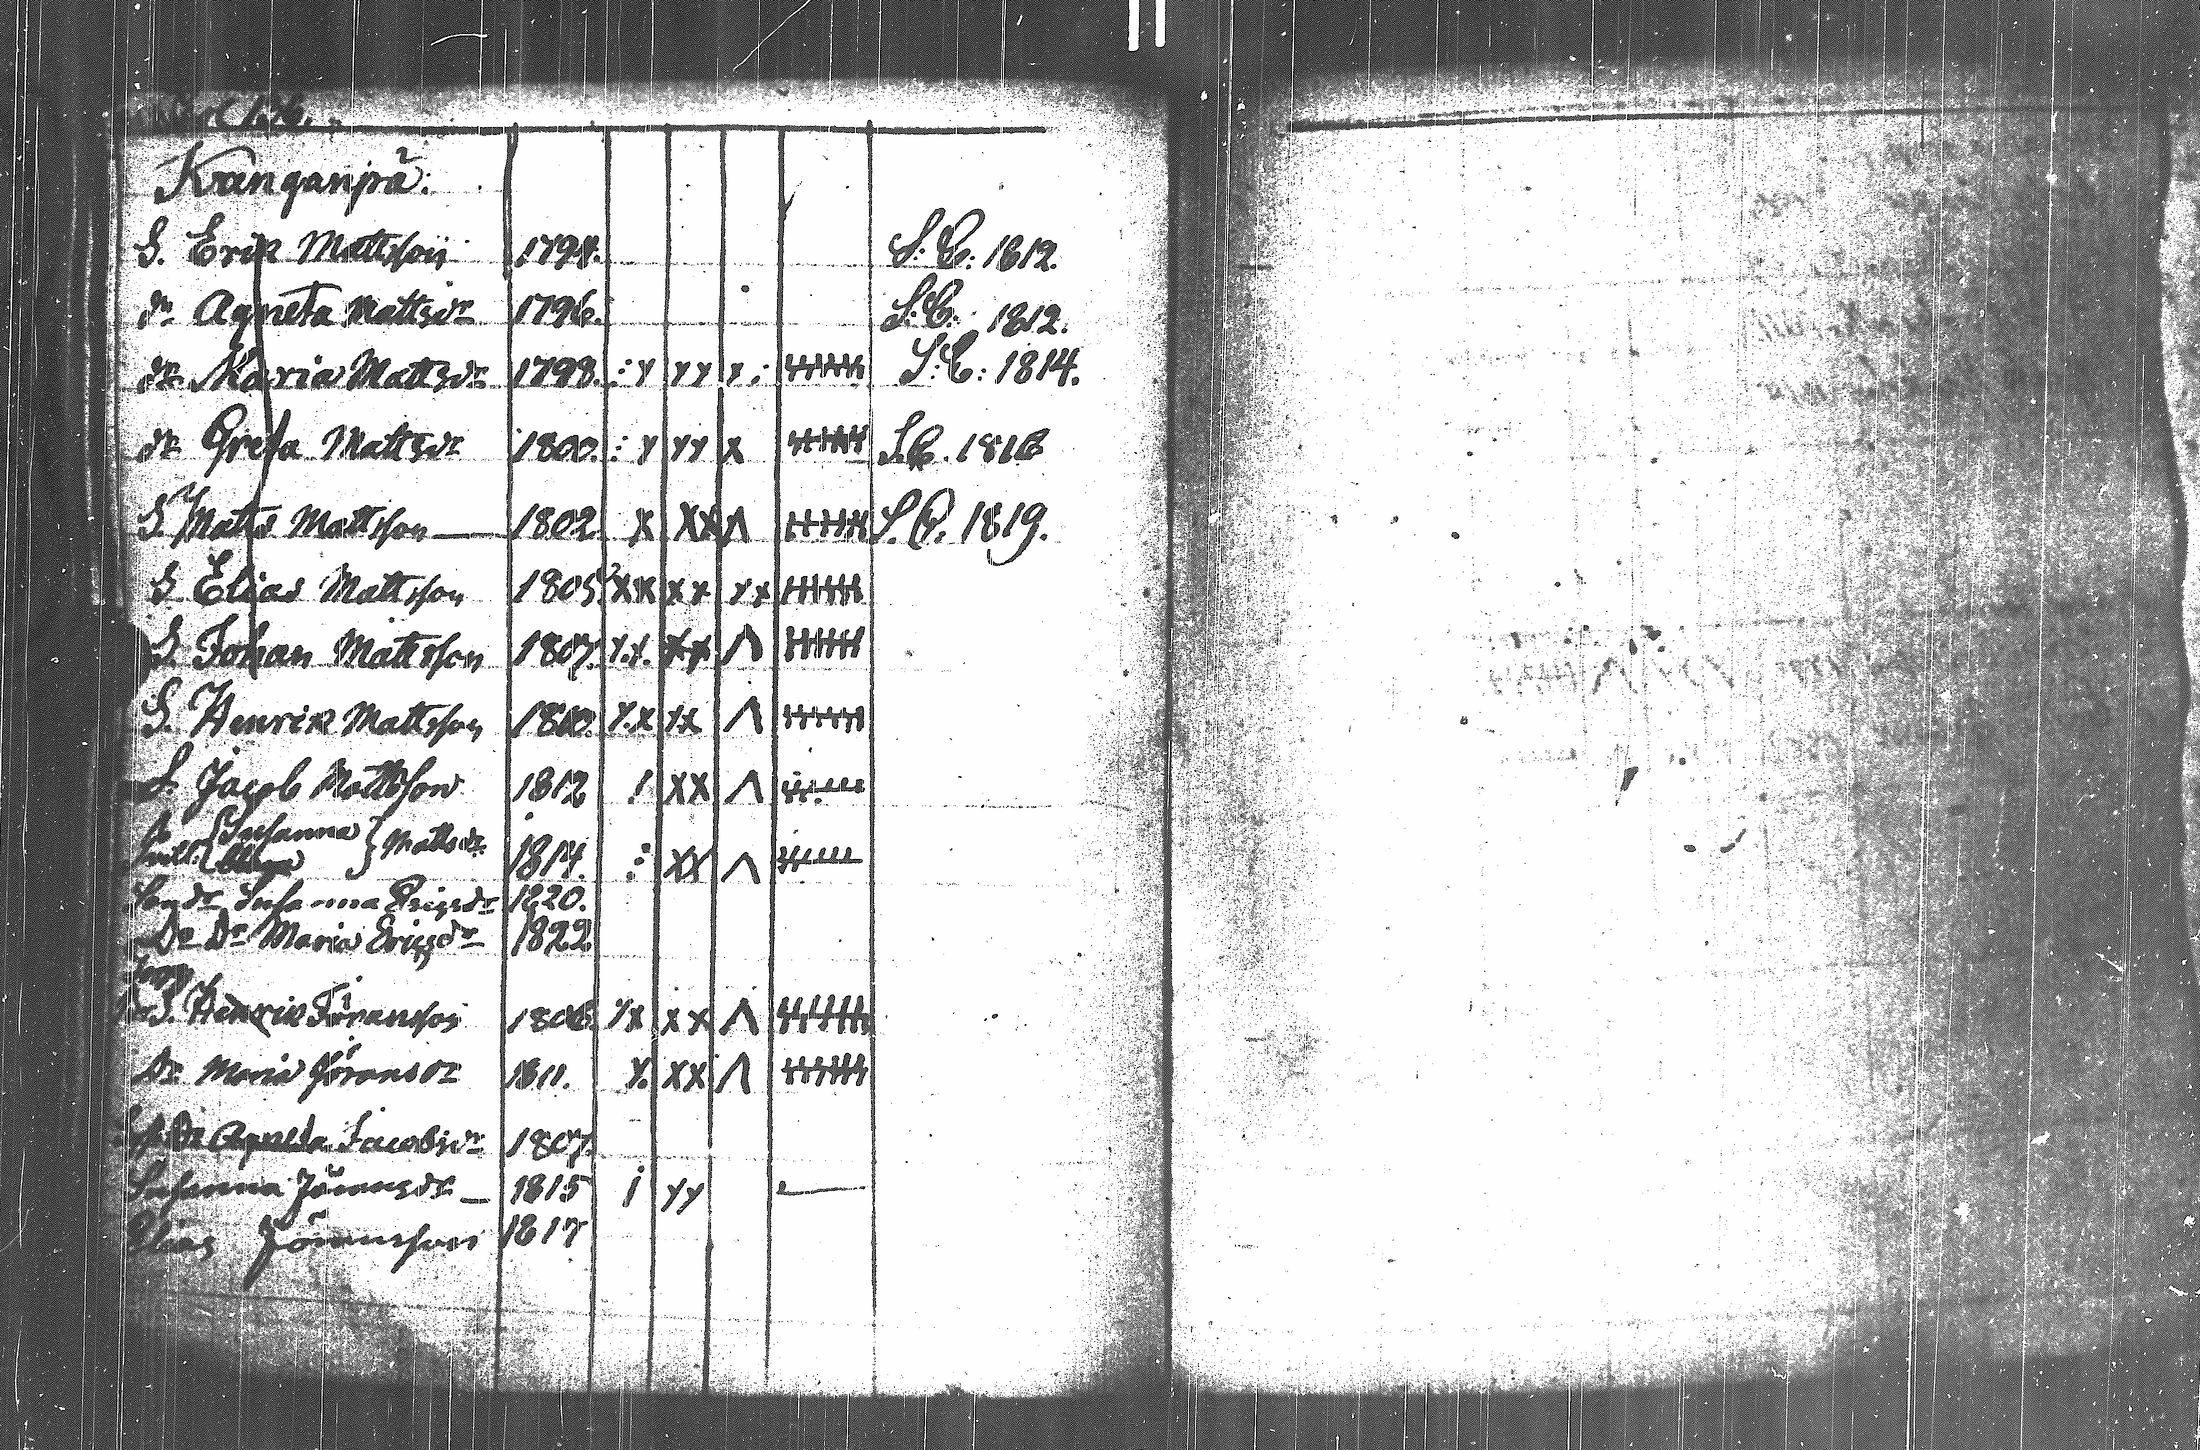 Kanganprå:
S. Erik Mattsson 1794. S: C: 1812.
dr Agneta Mattsdr 1796. S: C: 1812.
dr Maria Mattsdr 1798. S: C: 1814.
dr Greta Mattsdr 1800. S. C. 1816
S. Matts Mattsson 1802 S. C. 1819.
S Elias Mattsson 1805
S. Johan Mattsson 1807.
S. Henrik Mattsson 1810.
S. Jacob Mattsson 1812
Susanna } Mattsdr 1814.
Sondr Susanna Ericsdr 1820.
Do Dr Maria Ericsdr 1822
S. Henric Jöransson 1808.
Dr Maria Jöransdr 1811.
Dr Agneta Jacobsdr 1807.
Susanna Jöransdr 1815
Elias Jöransson 1817